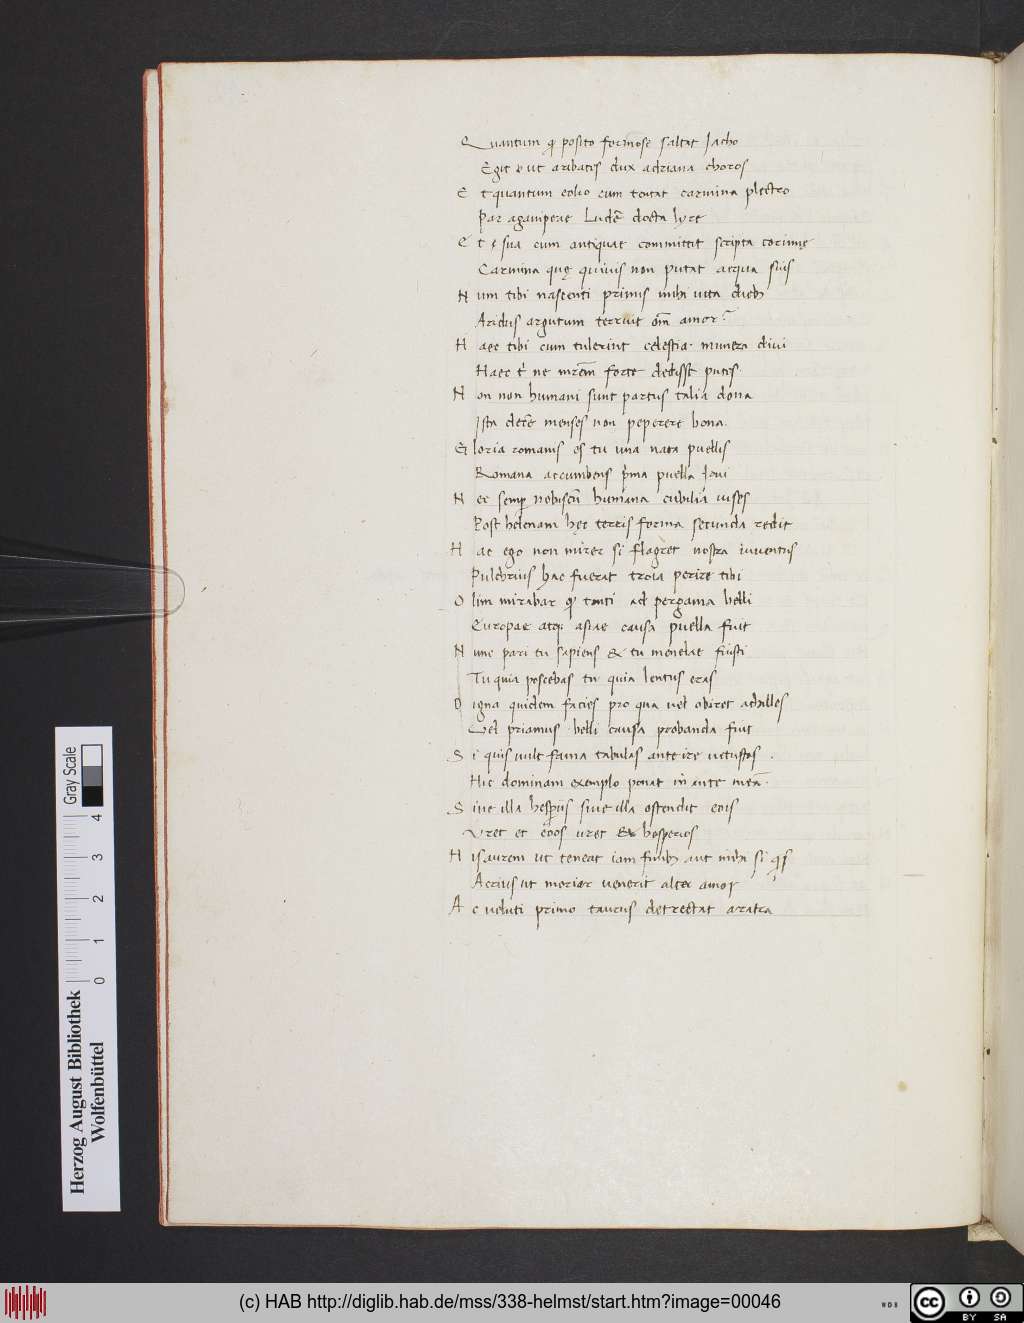 Quantum q posito formose saltat Jacho
Egit ut aribatis dux adriana choros
Et quantum eolio cum tentat carmina plectro
Par aganipeae Ludē docta lyre
Et sua cum antiquae committit scripta corinnę
Carmina quę quiuis non putat aequa suis
Num tibi nascenti primis mihi uita dieb
Aridus argutum terruit om̄ amor?
Haec tibi cum tulerint celestia munera diui
Haec t ne mrēm forte dedisse putes
Non non humani sunt partus talia dona
Ista decē menses non peperere bona
Gloria romanis es tu una nata puellis
Romana accumbens pma puella Joui
Nec semp nobiscū humana cubilia uises
Post helenam hęc terris forma secunda redit
Hac ego non mirer si flagret nostra iuuentus
Pulchrius hac fuerat troia perire tibi
Olim mirabar q tanti ad pergama belli
Europae atq asiae causa puella fuit
Nunc pari tu sapiens & tu menelae fuisti
Tu quia poscebas tu quia lentus eras
Digna quidem facies pro qua uel obiret achilles
Vel priamus belli causa probanda fuit
Si quis uult fama tabulas anteire uetustas
Hic dominam exemplo ponat in ante meā
Siue illa hesperiis siue illa ostendit eois
Vret et eoos uret & hesperios
His aurem ut teneat iam finib aut mihi si qs
Acrius ut moriar uenerit alter amor
Ac ueluti primo taurus detrectat aratra
Herzog August Bibliothek
Wolfenbüttel
Gray Scale
0 1 2 3 4
(c) HAB http://diglib.hab.de/mss/338-helmst/start.htm?image=00046
WDB
cc BY SA